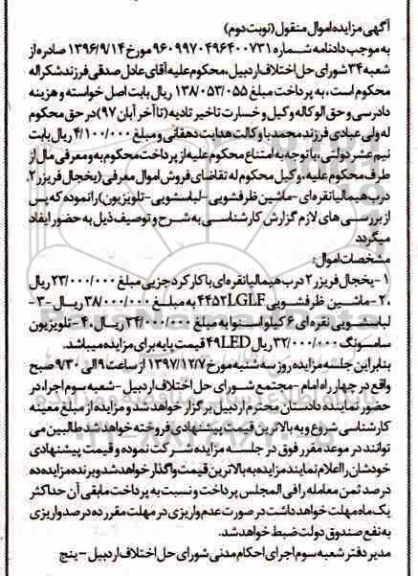 آگهی مزایده اموال منقول (نوبت دوم)
به موجب دادنامه شماره ۹۶۰۹۹۷۰۴۹۶۴۰۰۷۳۱ مورخ ۱۳۹۶/۹/۱۴ صادره از
شعبه ۳۴ شورای حل اختلاف اردبیل، محکوم علیه آقای عادل صدقی فرزند شکراله
محکوم است، به پرداخت مبلغ ۱۳۸/۰۵۳/۰۵۵ ریال بابت اصل خواسته و هزینه
دادرسی و حق الوکاله وکیل و خسارت تاخیر تادیه (تا آخر آبان ۹۷) در حق محکوم
له ولی عبادی فرزند محمد با وکالت هدایت دهقانی و مبلغ ۴/۱۰۰/۰۰۰ ریال بابت
نیم عشر دولتی، با توجه به امتناع محکوم علیه از پرداخت محکوم به و معرفی مال از
طرف محکوم علیه، وکیل محکوم له تقاضای فروش اموال معرفی (یخچال فریزر ۲
درب هیمالیا نقره ای -ماشین ظرفشویی-لباسشویی-تلویزیون) را نموده که پس
از بررسی های لازم گزارش کارشناسی به شرح و توصیف ذیل به حضور ایفاد
میگردد
مشخصات اموال:
۱- یخچال فریزر ۲ درب هیمالیا نقره ای با کارکرد جزیی مبلغ ۲۳/۰۰۰/۰۰۰ ریال
۲۰- ماشین ظرفشویی ۴۴۵۲LGLF به مبلغ ۳۸/۰۰۰/۰۰۰ ریال -۳-
لباسشویی نقره ای ۶ کیلو اسنوا به مبلغ ۳۴/۰۰۰/۰۰۰ ریال، ۴- تلویزیون
سامسونگ ۴۹LED ۳۲/۰۰۰/۰۰۰ ریال قیمت پایه برای مزایده میباشد.
بنابراین جلسه مزایده روز سه شنبه مورخ ۱۳۹۷/۱۲/۷ از ساعت ۹ الی ۹/۳۰ صبح
واقع در چهارراه امام -مجتمع شورای حل اختلاف اردبیل -شعبه سوم اجرا، در
حضور نماینده دادستان محترم اردبیل برگزار خواهد شد و مزایده از مبلغ معینه
کارشناسی شروع و به بالاترین قیمت پیشنهادی فروخته خواهد شد طالبین می
توانند در موعد مقرر فوق در جلسه مزایده شرکت نموده و قیمت پیشنهادی
خودشان را اعلام نمایند مزایده به بالاترین قیمت واگذار خواهد شد و برنده مزایده ده
درصد ثمن معامله را فی المجلس پرداخت و نسبت به پرداخت مابقی آن حداکثر
یک ماه مهلت خواهد داشت در صورت عدم واریزی در مهلت مقرر ده درصد واریزی
به نفع صندوق دولت ضبط خواهد شد.
مدیر دفتر شعبه سوم اجرای احکام مدنی شورای حل اختلاف اردبیل - پنج